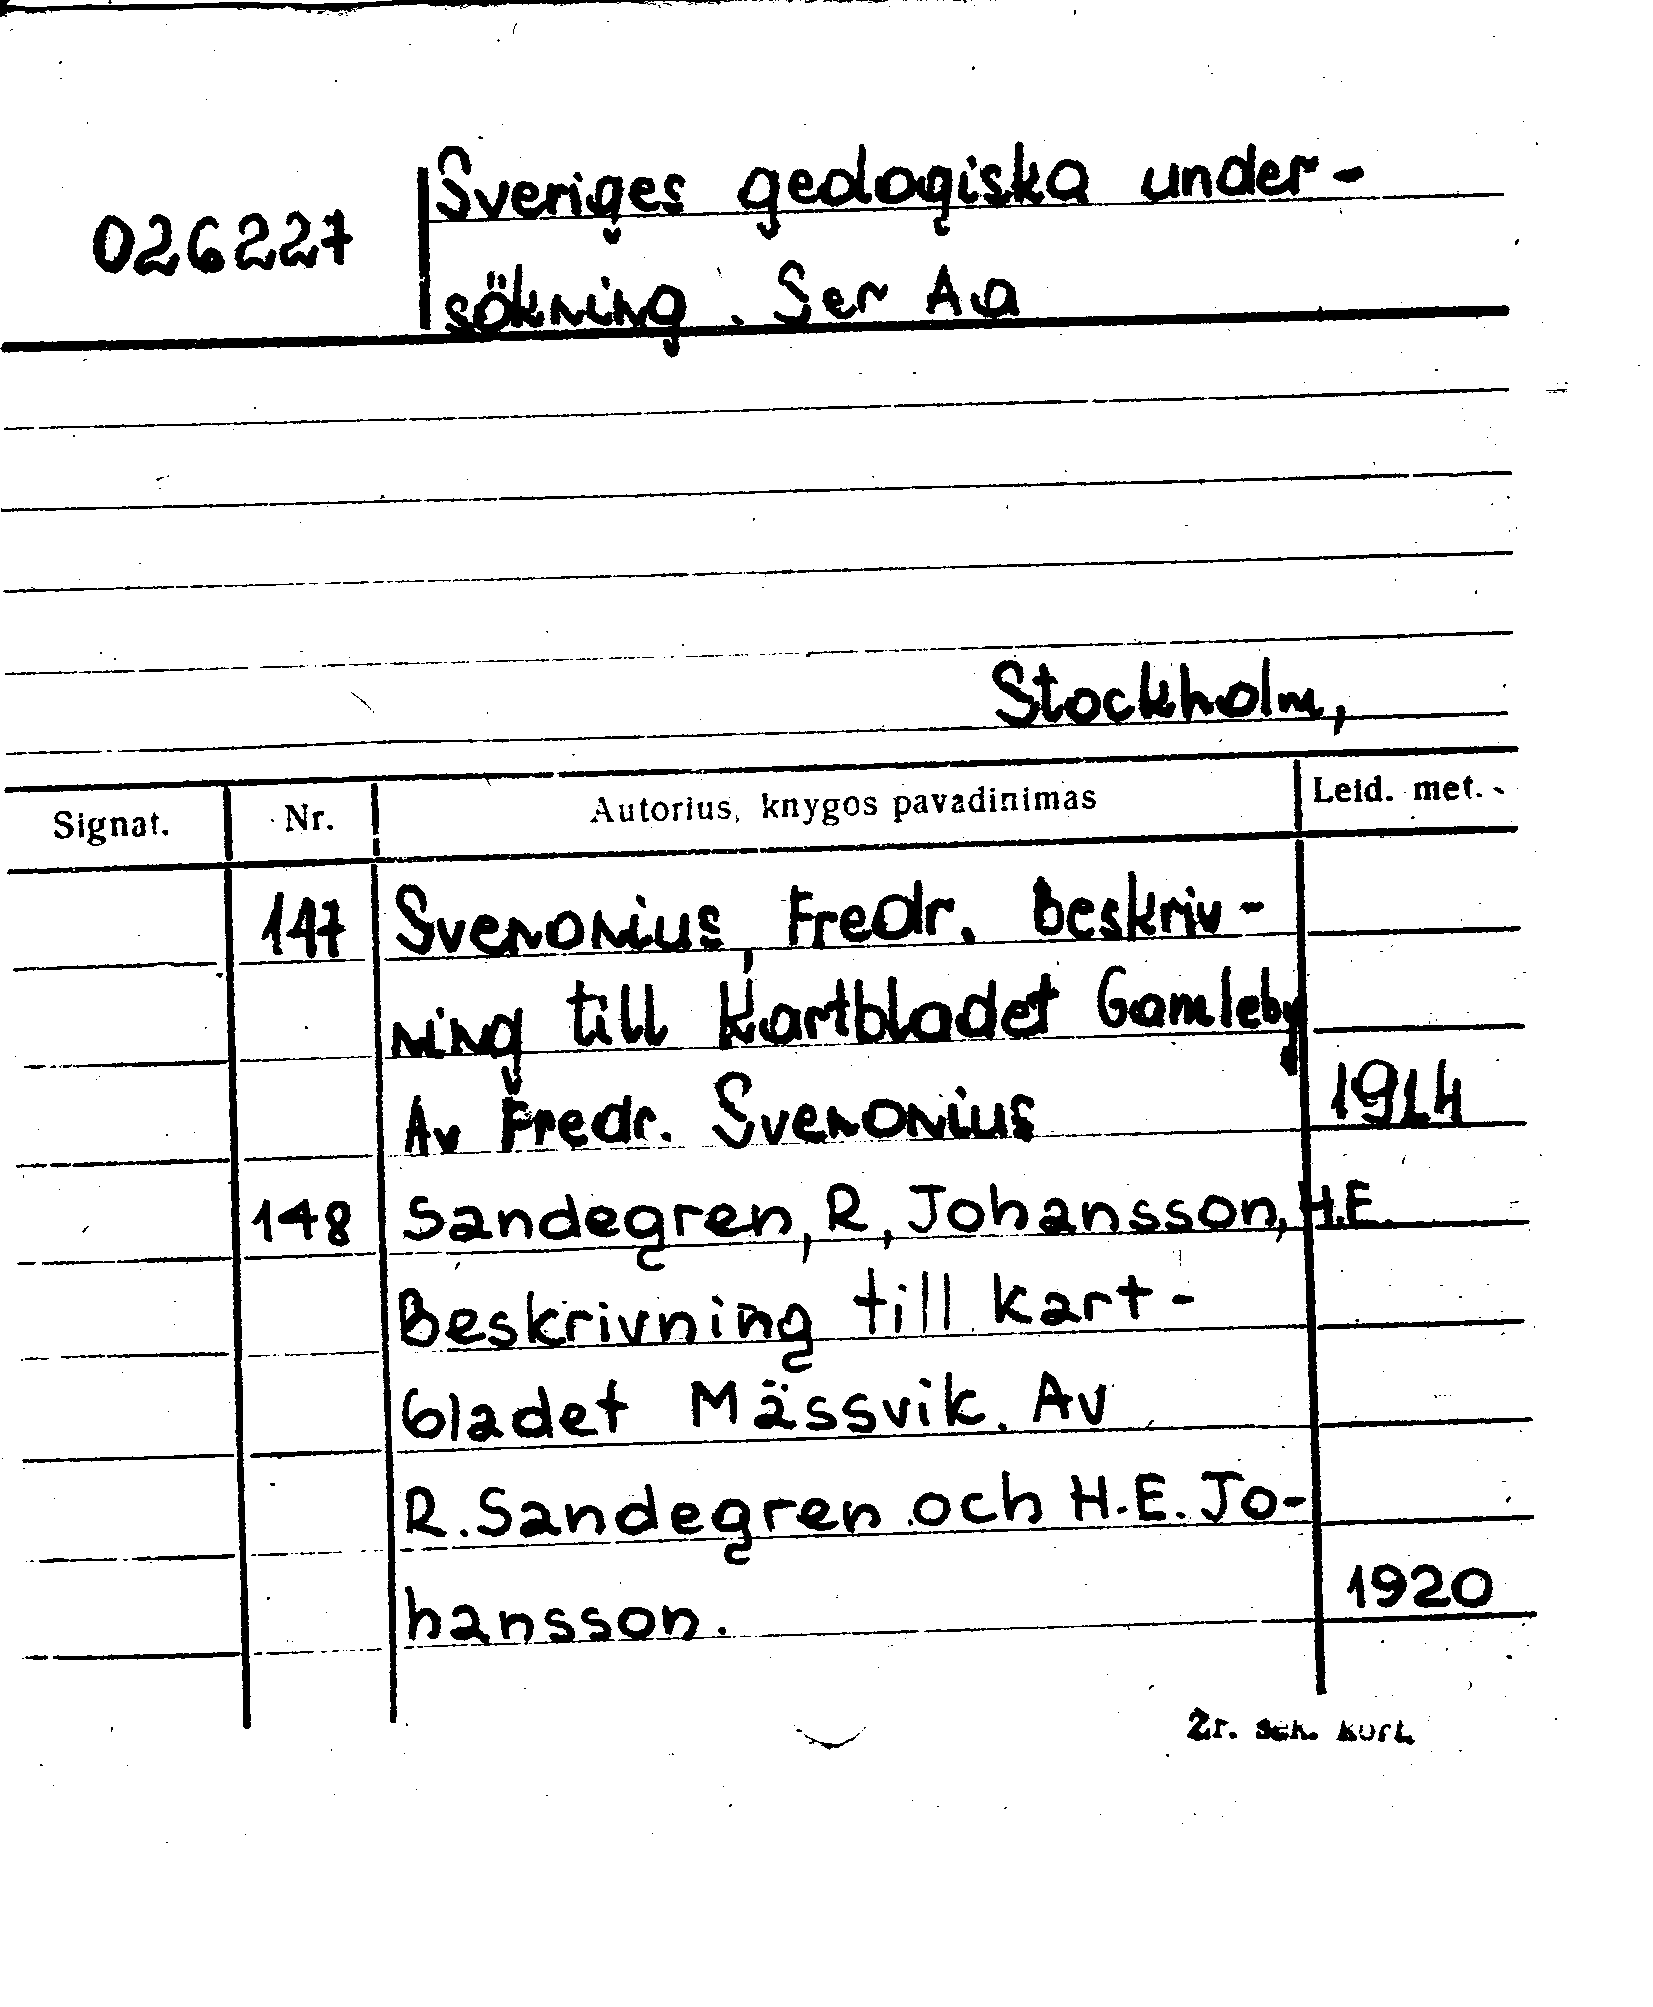 026227
Sveriges geologiska under-
sökning. Ser Aa
Stockholm,
Signat. Nr. Autorius, knygos pavadinimas Leid. met.
147 Svenonius, Fredr. Beskriv-
ning till Kartbladet Gamleby
Av Fredr. Svenonius 1914
148 Sandegren, R, Johansson, H.E.
Beskrivning till kart-
bladet Mässvik. Av
R. Sandegren och H.E. Jo-
hansson. 1920
Žr. sek. kort.